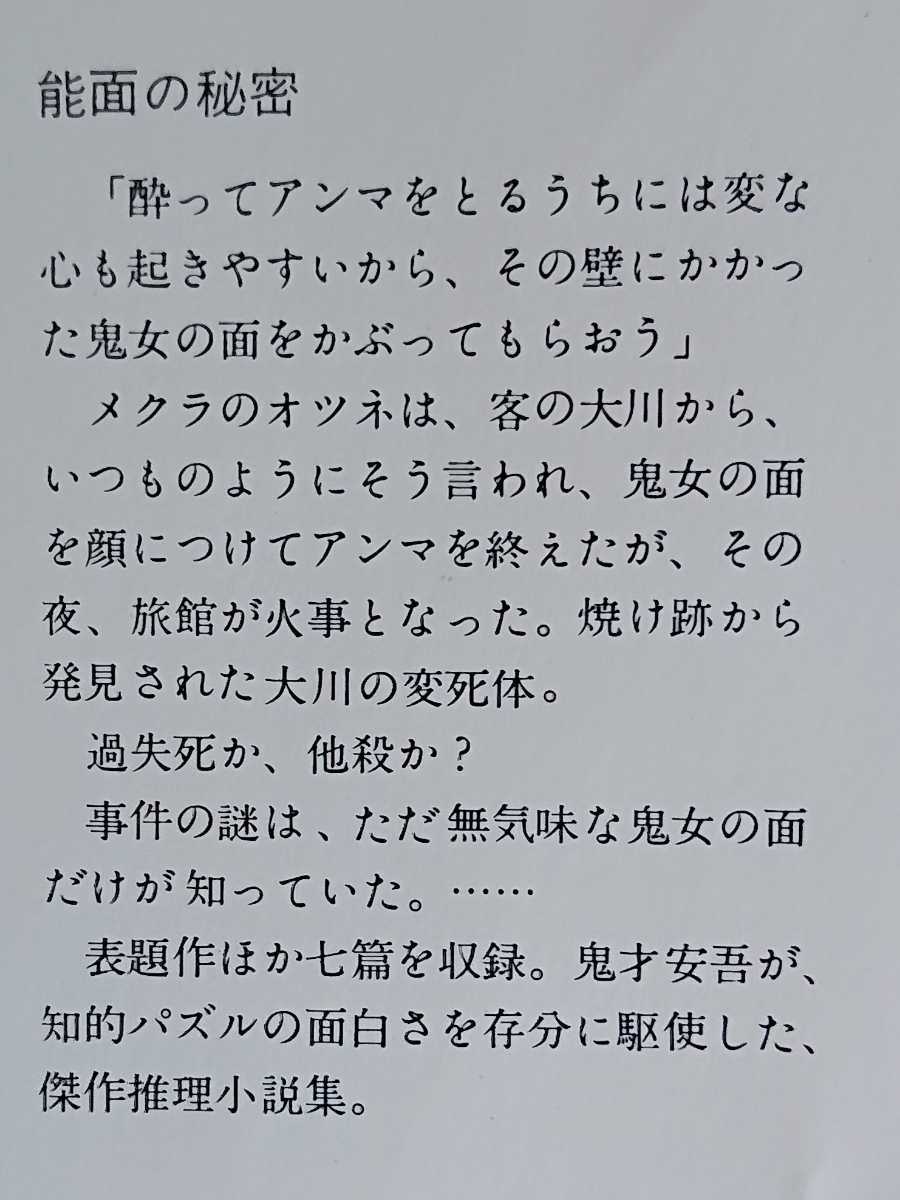 能面の秘密
「酔ってアンマをとるうちには変な
心も起きやすいから、その壁にかかっ
た鬼女の面をかぶってもらおう」
メクラのオツネは、客の大川から、
いつものようにそう言われ、鬼女の面
を顔につけてアンマを終えたが、その
夜、旅館が火事となった。焼け跡から
発見された大川の変死体。
過失死か、他殺か?
事件の謎は、ただ無気味な鬼女の面
だけが知っていた。……
表題作ほか七篇を収録。鬼才安吾が、
知的パズルの面白さを存分に駆使した、
傑作推理小説集。